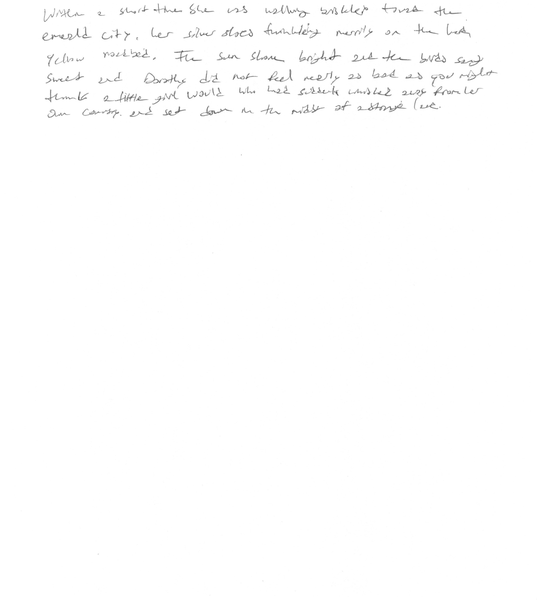 Within a short time she was walking briskly toward the
emerald city, her silver shoes twinkling merrily on the hard
yellow roadbed. The sun shone bright and the birds sang
sweet and Dorothy did not feel nearly as bad as you might
think a little girl would who had suddenly whisked away from her
own country, and set down in the midst of a strange